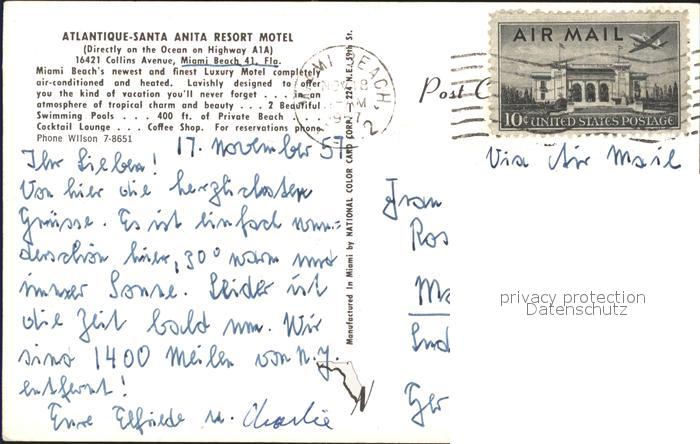 ATLANTIQUE-SANTA ANITA RESORT MOTEL
(Directly on the Ocean on Highway A1A)
16421 Collins Avenue, Miami Beach 41, Fla.
Miami Beach's newest and finest Luxury Motel completely
air-conditioned and heated. Lavishly designed to offer
you the kind of vacation you'll never forget . . . in an
atmosphere of tropical charm and beauty . . . 2 Beautiful
Swimming Pools . . . 400 ft. of Private Beach . . .
Cocktail Lounge . . . Coffee Shop. For reservations phone
Phone WIlson 7-8651
17. November 57
Ihr Lieben!
Von hier die herzlichsten
Grüsse. Es ist einfach wun=
derschön hier, 30° warm und
immer Sonne. Leider ist
die Zeit bald um. Wir
sind 1400 Meilen von N.J.
entfernt!
Eure Elfriede u. Charlie
Manufactured in Miami by NATIONAL COLOR CARD CORP. 224 N.E. 59th St.
MI BEACH
NOV 8
PM
2
Post C
AIR MAIL
10¢ UNITED STATES POSTAGE
Via Air Mail
Frau
Ros
Ger
privacy protection
Datenschutz